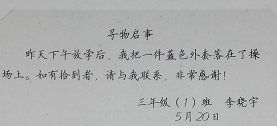 寻物启事
昨天下午放学后，我把一件蓝色外套落在了操
场上。如有拾到者，请与我联系，非常感谢！
三年级（1）班 李晓宇
5月20日